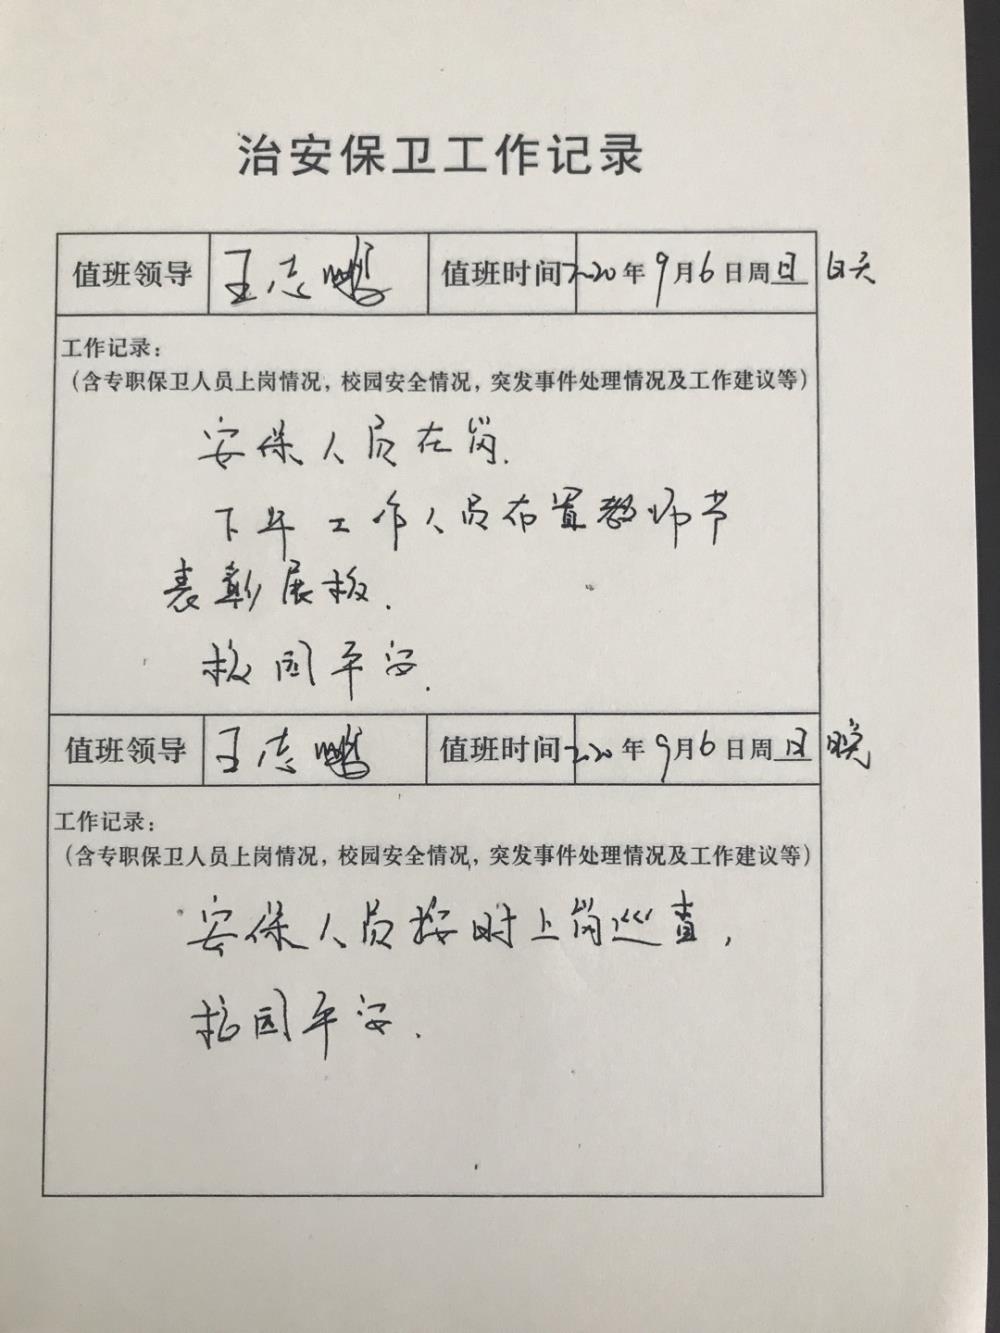 治安保卫工作记录
值班领导 王志鹏 值班时间 2020年9月6日周日 白天
工作记录：
（含专职保卫人员上岗情况，校园安全情况，突发事件处理情况及工作建议等）
安保人员在岗.
下午工作人员布置教师节
表彰展板.
校园平安.
值班领导 王志鹏 值班时间 2020年9月6日周日 晚
工作记录：
（含专职保卫人员上岗情况，校园安全情况，突发事件处理情况及工作建议等）
安保人员按时上岗巡查，
校园平安.